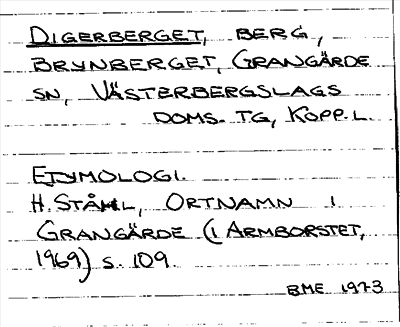 DIGERBERGET, BERG,
BRYNBERGET, GRANGÄRDE
SN, VÄSTERBERGSLAGS
DOMS. TG, KOPP. L.
ETYMOLOGI.
H. STÅHL, ORTNAMN I
GRANGÄRDE (I ARMBORSTET,
1969) S. 109.
BME 1973